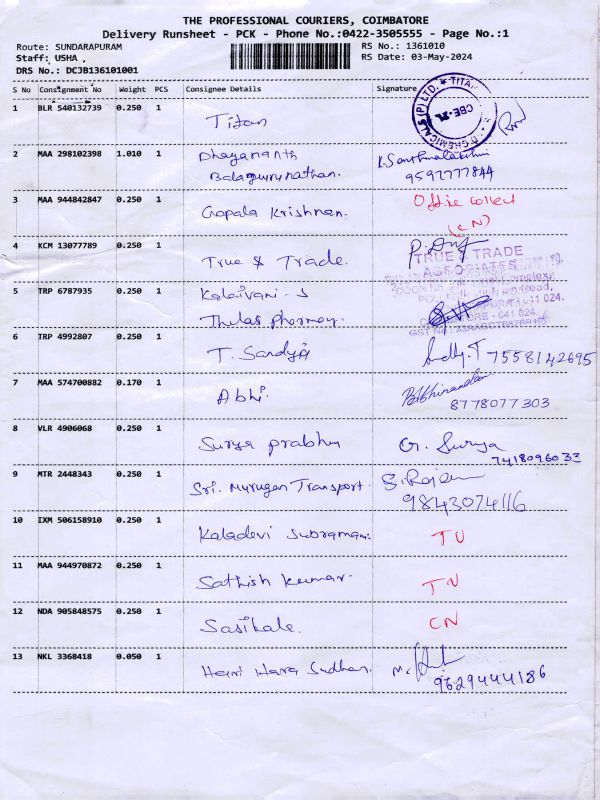 THE PROFESSIONAL COURIERS, COIMBATORE
Delivery Runsheet - PCK - Phone No.:0422-3505555 - Page No.:1
Route: SUNDARAPURAM
RS No.: 1361010
Staff: USHA ,
RS Date: 03-May-2024
DRS No.: DCJB136101001
S No Consignment No Weight PCS Consignee Details Signature
1 BLR 540132739 0.250 1 Titan
2 MAA 298102398 1.010 1 Dhayananth
Balagurunathan. 9592777844
3 MAA 944842847 0.250 1 Gopala Krishnan. Office collect
(CN)
4 KCM 13077789 0.250 1 True & Trade.
TRUE & TRADE
ASSOCIATES
5 TRP 6787935 0.250 1 Kalaivani-S
6 TRP 4992807 0.250 1 T. Sandya 7558142695
7 MAA 574700882 0.170 1 Abhi.
8778077303
8 VLR 4906068 0.250 1 Surya prabhu G. Surya
7418096033
9 MTR 2448343 0.250 1 Sri. Murugan Transport.
9843074116
10 IXM 506158910 0.250 1 Kaladevi
11 MAA 944970872 0.250 1 Sathish Kumar. TN
12 NDA 905848575 0.250 1 Sasikala. CN
13 NKL 3368418 0.050 1 Hari Hara Sudhan.
9629444186